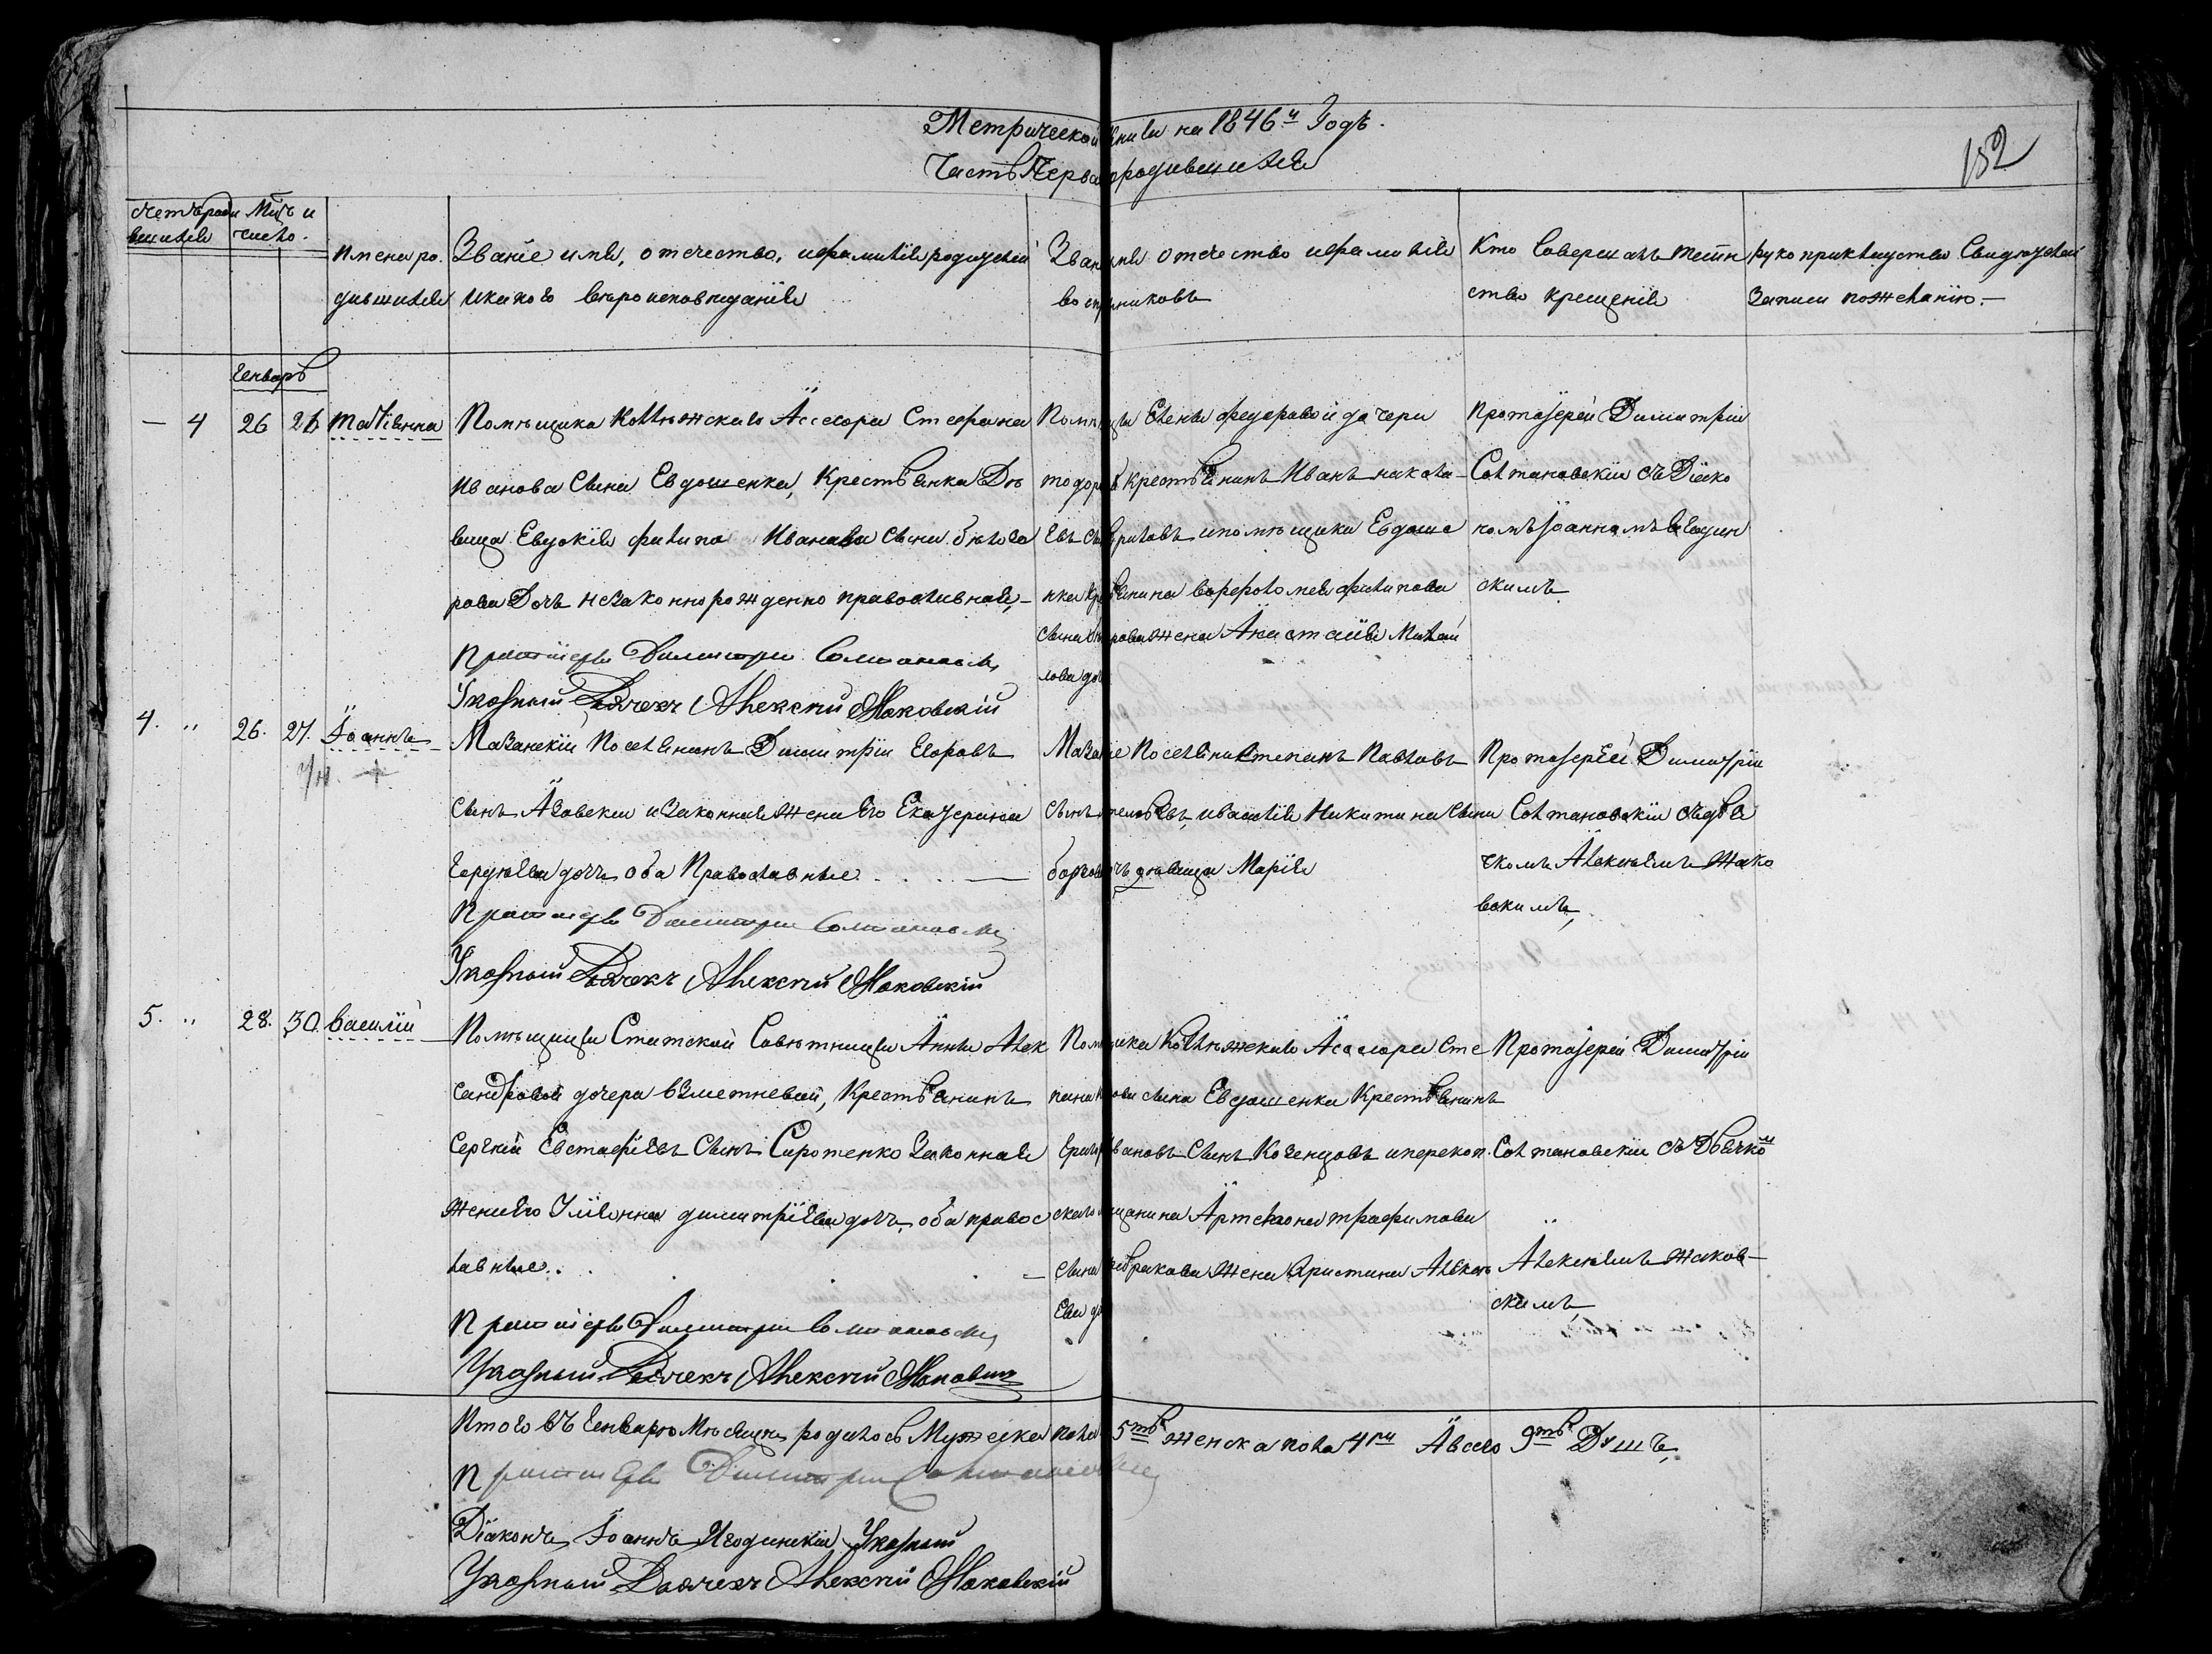 Метрической книги на 1846й Годъ.
Часть Первая о родившихся
182
Счетъ роди
вшихся
Мцъ и
число.
Имена ро
дившихся
Званіе имя, отечество, и фамилія родителей
и какого вероисповеданія
Званіе имя отечество и фамилія
воспріемниковъ
Кто Совершалъ таин
ство крещенія
рукоприкладство Свидетелей
Записи по желанію.—
Генваръ
— 4 26 26 Татіанна
Помѣщика Коллѣжскаго Ассесора Стефана
Иванова Сына Евдошенка, Крестьянка Дѣ
вица Евдокія филипа Иванова Сына
рова Дочь незаконнорожденно православная,—
Протоіерей Димитрий Солтановский
Указный Дьячекъ Алексѣй Жаковскій
Помѣщицы Елены федоровой дочери
крестьянинъ Иванъ никола—
евъ Сынъ и помѣщика Евдоше
нка Крестьянина Варфоломея филипова
Сына жена Анастасія Михай
лова дочь
Протоіерей Димитрій
Солтановскій съ Діако
номъ Іоанномъ Ягодин
скимъ.
4. ,, 26. 27. Іоаннъ
Ум. +
Мазанскій Поселянинъ Димитрій Егоровъ
Сынъ Азовскій и Законная жена Его Екатерина
дочь оба Православные.
Протоіерей Димитрий Солтановский
Указный Дьячекъ Алексѣй Жаковскій
Мазанскіе Поселянинъ Степанъ Павловъ
Сынъ и Василія Никитина Сына
дочь дѣвица Марія
Протоіерей Димитрій
Солтановскій съ дья
чкомъ Алексѣемъ Жако
вскимъ,
5. ,, 28. 30. Василій
Помѣщицы Статской Совѣтницы Анны Алек
сандровой дочери Взметневой, Крестьянинъ
Сергѣй Евстафіевъ Сынъ Сиротенко Законная
жена Его Уліянна димитріева дочь, оба правос
лавные.
Протоіерей Димитрий Солтановский
Указный Дьячекъ Алексѣй Жаковский
Помѣщика Коллѣжскаго Ассесора Сте
фана Иванова сына Евдошенка Крестьянинъ
Ивановъ Сынъ и перекоп
скаго мещанина Артемона трофимова
Сына жена Христина Алексѣ
ева дочь
Протоіерей Димитрій
Солтановскій съ Дьячком
Алексѣемъ Жаков—
скимъ
Итого въ Генварѣ Мѣсяцѣ родилось Мужеска пола 5ть женска пола 4ри А всего 9ть Душъ,
Протоіерей Димитрий Солтановский
Діаконъ Іоаннъ Ягодинскій Указный
Указный Дьячекъ Алексѣй Жаковскій